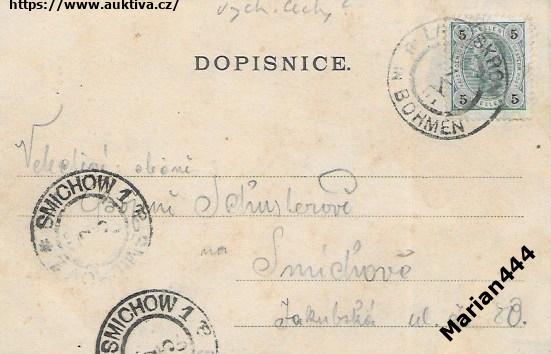 https://www.auktiva.cz/
vých. Čechy?
DOPISNICE.
5 5
5 5
BÖHMEN
Velectěná slečně
Schusterové
na
Smíchově
Jakubská ul. č.
SMICHOW 1
SMICHOW 1
Marian444